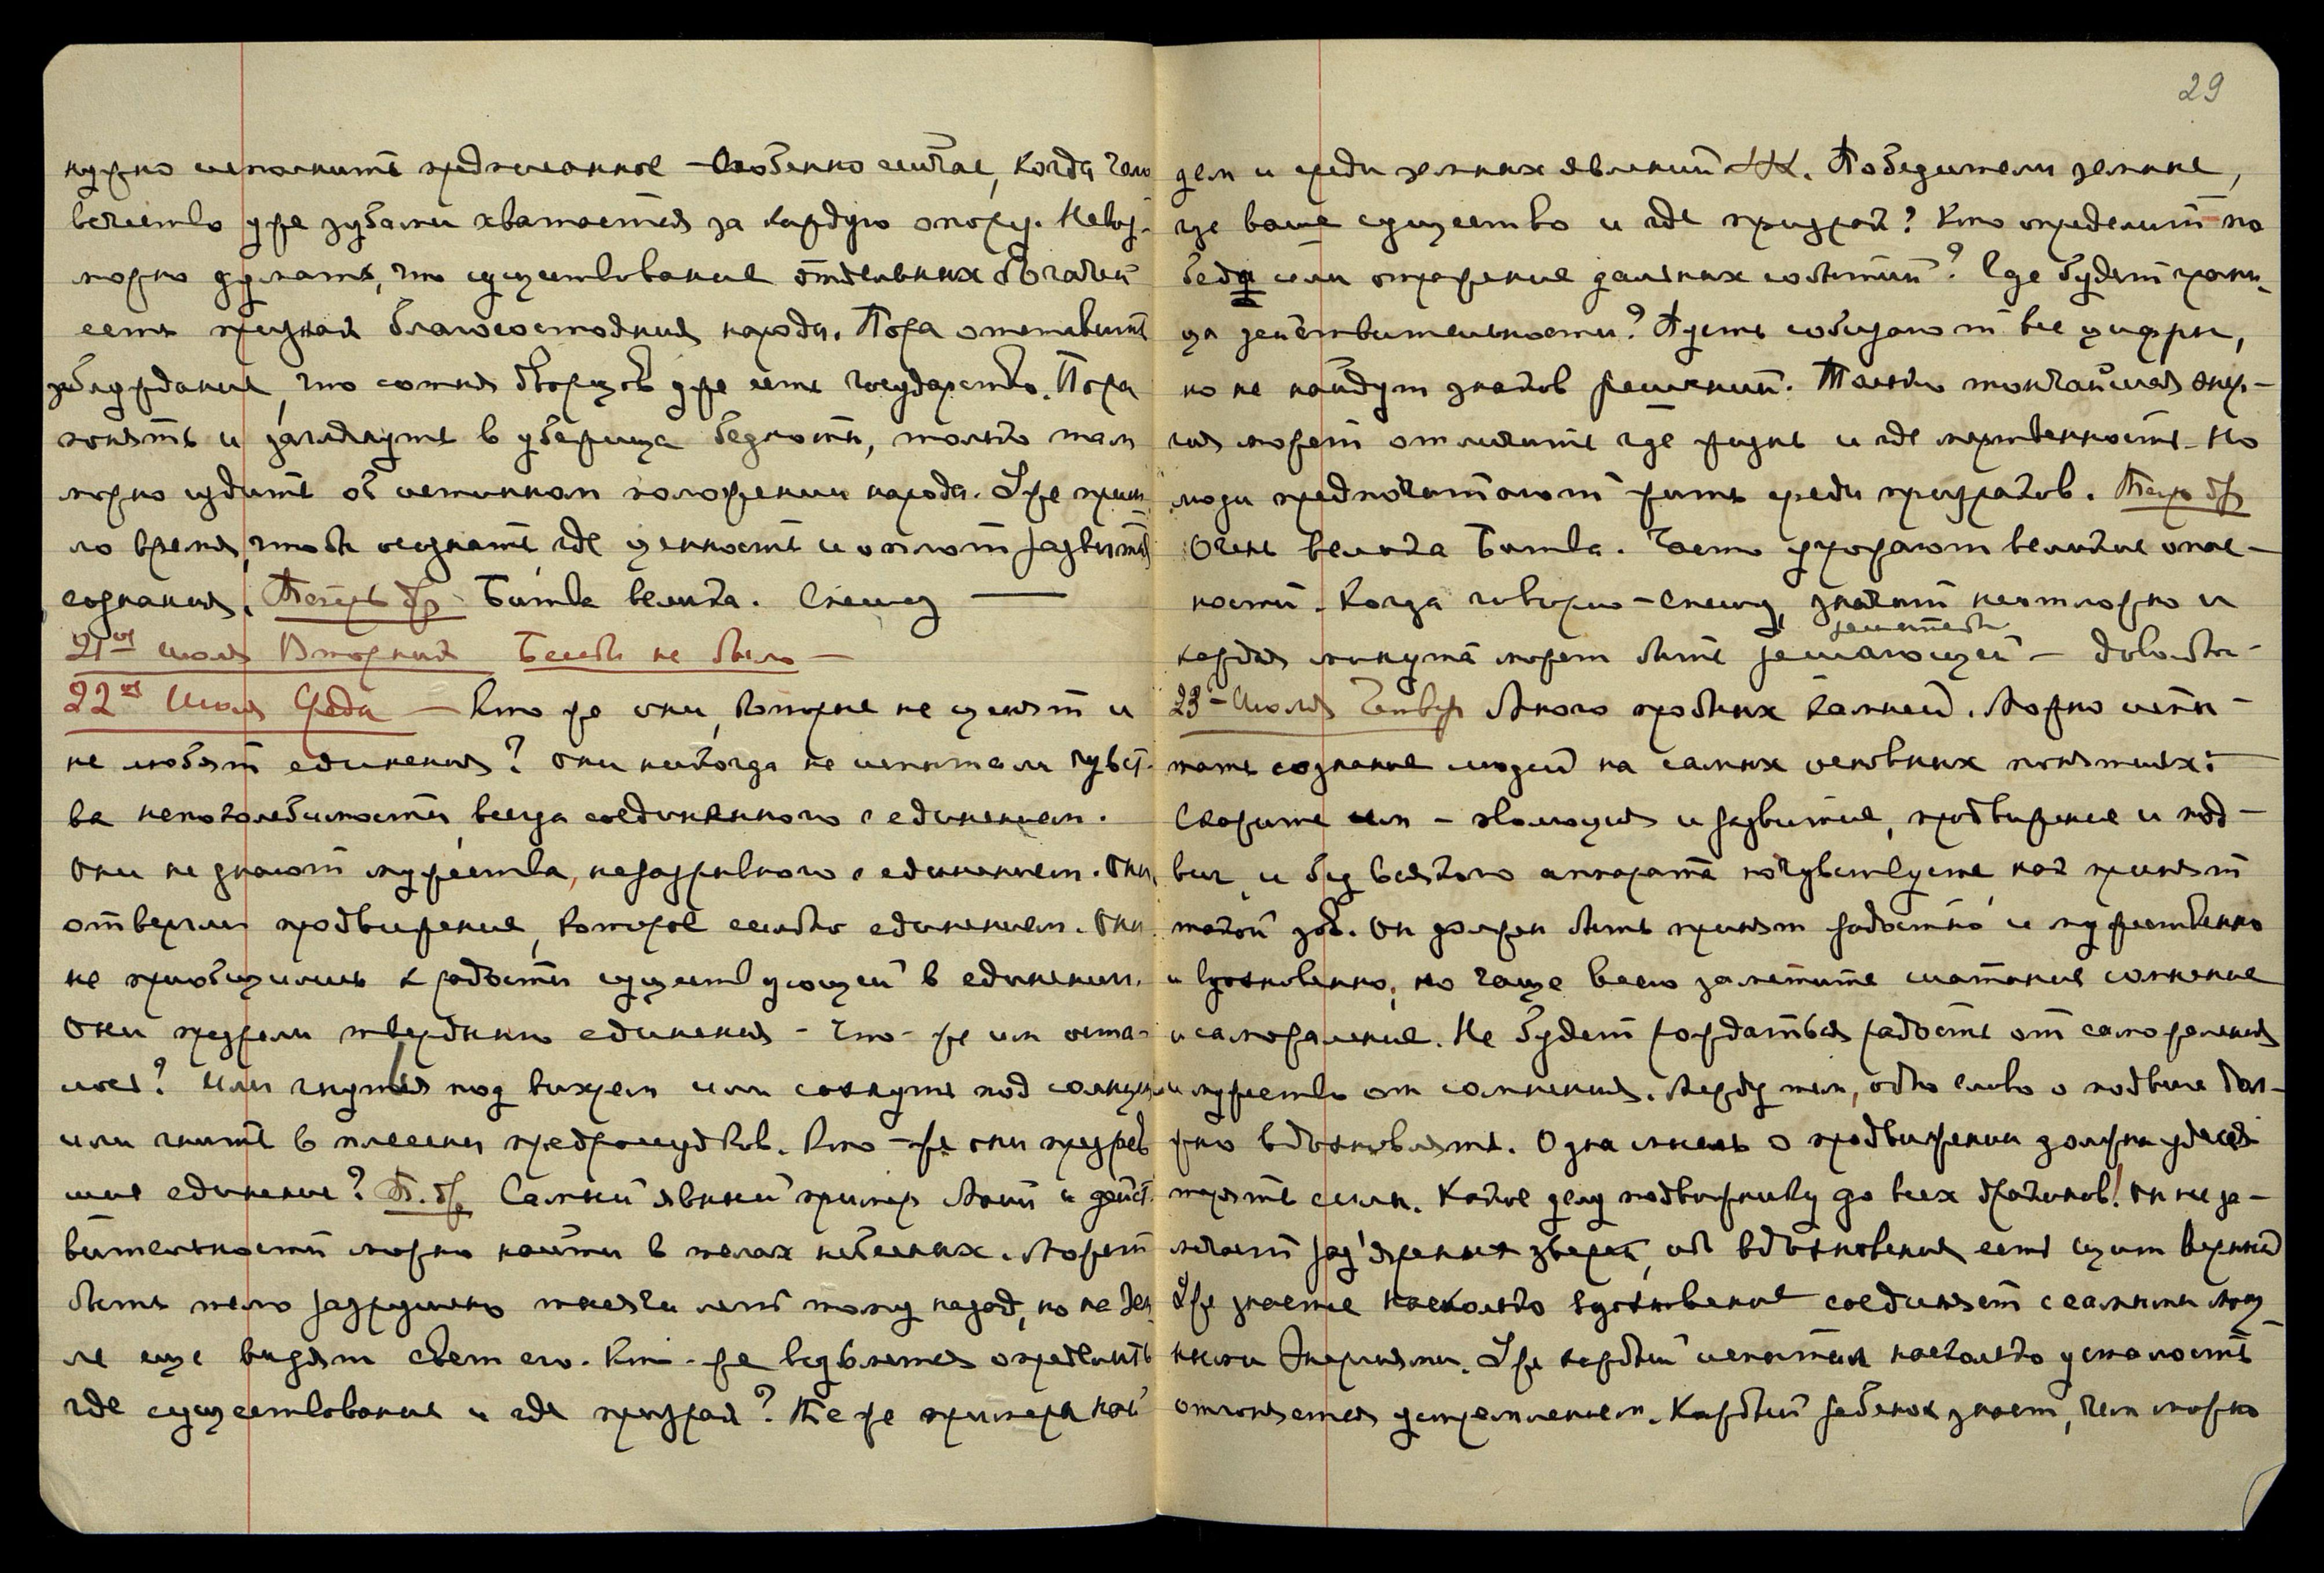 нужно исполнить предписанное – Особенно сейчас, когда чело
вечество уже зубами хватается за каждую опору. Невоз-
можно думать, что существование отдельных богачей
есть признак благосостояния народа. Пора отставить
заблуждение, что сотня дворцов уже есть государство. Пора
понять и заглянуть в убежища бедноты, только там
можно судить об истинном положении народа. Уже приш
ло время, чтобы осознать, где ценность и оплот развития
сознания. Теперь др Битва велика. Спешу —
21го июля Вторник Беседы не было –
22го Июля Среда – Кто же они, которые не ценят и
не любят единения? Они никогда не испытали чувст-
ва непоколебимости, всегда соединенного с единением.
Они не знают мужества, неразрывного с единением. Они
отвергли продвижение, которое сильно единением. Они
не приобщились к радости существующей в единении.
Они презрели твердыню единения – Что-же им оста-
лось? Или гнуться под вихрем или сохнуть под солнцем
или гнить в плесени предрассудков. Кто-же они презрев
шие единение? Т. др. Самый явный пример Майи и дейст-
вительности можно найти в телах небесных. Может
быть тело разрушено тысячи лет тому назад, но на зем
ле еще видят свет его. Кто-же возьмется определить
где существование и где призрак? Те же примеры най
29
дем и среди земных явлений. Победители земные,
где ваше существо и где призрак? Кто определит по
беду или отражение дальних событий? Где будет грани-
ца действительности? Пусть собирают все цифры,
но не найдут знаков решений. Только тончайшая энер-
гия может отличить где жизнь и где мертвенность. Но
люди предпочитают жить среди призраков. Теперь др
Очень велика Битва. Часто угрожают великие опас-
ности. Когда говорю – Спешу, значит неотложно и
каждая минута может быть решающей – довольно –
23-Июля Четверг Много пробных камней. Можно испы-
тать сознание людей на самых основных понятиях:
Скажите им – эволюция и развитие, продвижение и под-
виг, и без всякого аппарата почувствуете как принят
такой зов. Он должен быть принят радостно и мужественно
и вдохновенно, но чаще всего заметите шатание сомнение
и саможаление. Не будет рождаться радость от саможаления
и мужество от сомнения. Между тем, одно слово о подвиге дол-
жно вдохновлять. Одна мысль о продвижении должна удеся
терять силы. Какое дело подвижнику до всех драконов! Он не за-
мечает раз'яренных зверей, ибо вдохновение есть щит верный
Уже знаете насколько вдохновение соединяет с самыми мощ
ными Энергиями. Уже каждый испытал насколько усталость
отгоняется устремлением. Каждый ребенок знает, чем можно